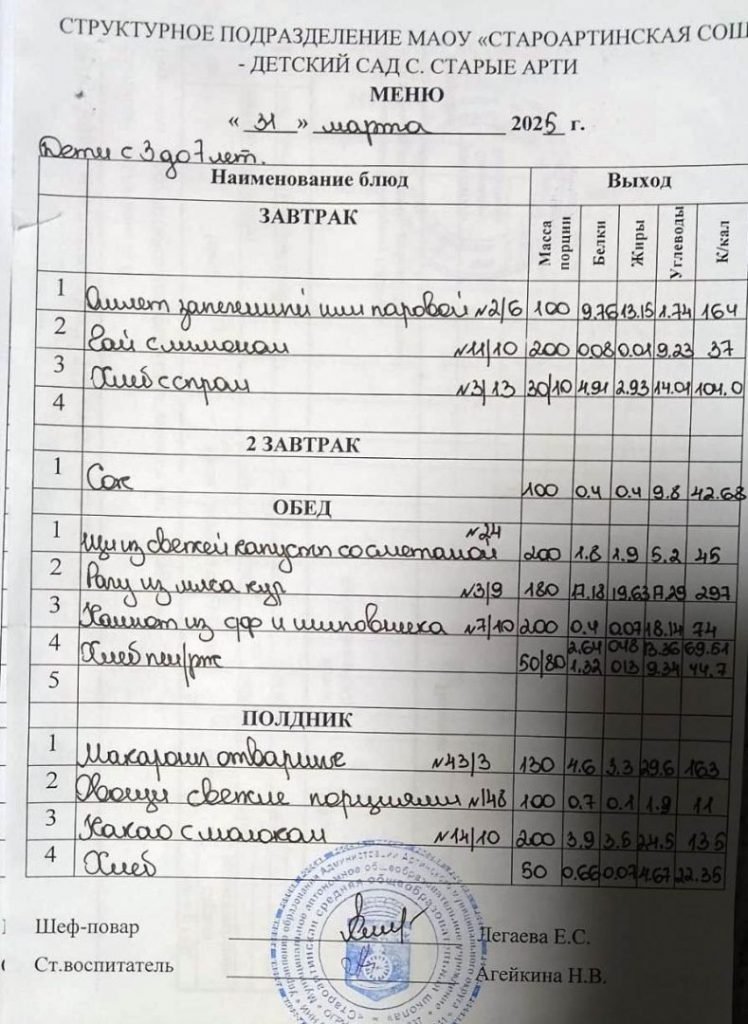 СТРУКТУРНОЕ ПОДРАЗДЕЛЕНИЕ МАОУ «СТАРОАРТИНСКАЯ СОШ
- ДЕТСКИЙ САД С. СТАРЫЕ АРТИ
МЕНЮ
« 31 » марта 2025 г.
Дети с 3 до 7 лет.
Наименование блюд Выход
ЗАВТРАК Масса порции Белки Жиры Углеводы К/кал
1 Омлет запеченный или паровой №2/6 100 9.76 13.15 1.74 164
2 Чай с лимоном №11/10 200 0.08 0.01 9.23 37
3 Хлеб с сыром №3/13 30/10 4.91 2.93 14.01 104.0
4
2 ЗАВТРАК
1 Сок 100 0.4 0.4 9.8 42.68
ОБЕД
1 Щи из свежей капусты со сметаной №24 200 1.8 1.9 5.2 45
2 Рагу из мяса кур №3/9 180 17.18 19.63 17.29 297
3 Компот из с/ф и шиповника №7/10 200 0.4 0.07 18.14 74
4 Хлеб пш/рж 50/80 2.64 048 13.36 69.51
1.32 013 9.34 44.7
5
ПОЛДНИК
1 Макароны отварные №43/3 130 4.6 3.3 29.6 163
2 Овощи свежие порциями №148 100 0.7 0.1 1.9 11
3 Какао с молоком №14/10 200 3.9 3.5 24.5 135
4 Хлеб 50 0.66 0.07 4.67 22.35
Шеф-повар Легаева Е.С.
Ст.воспитатель Агейкина Н.В.